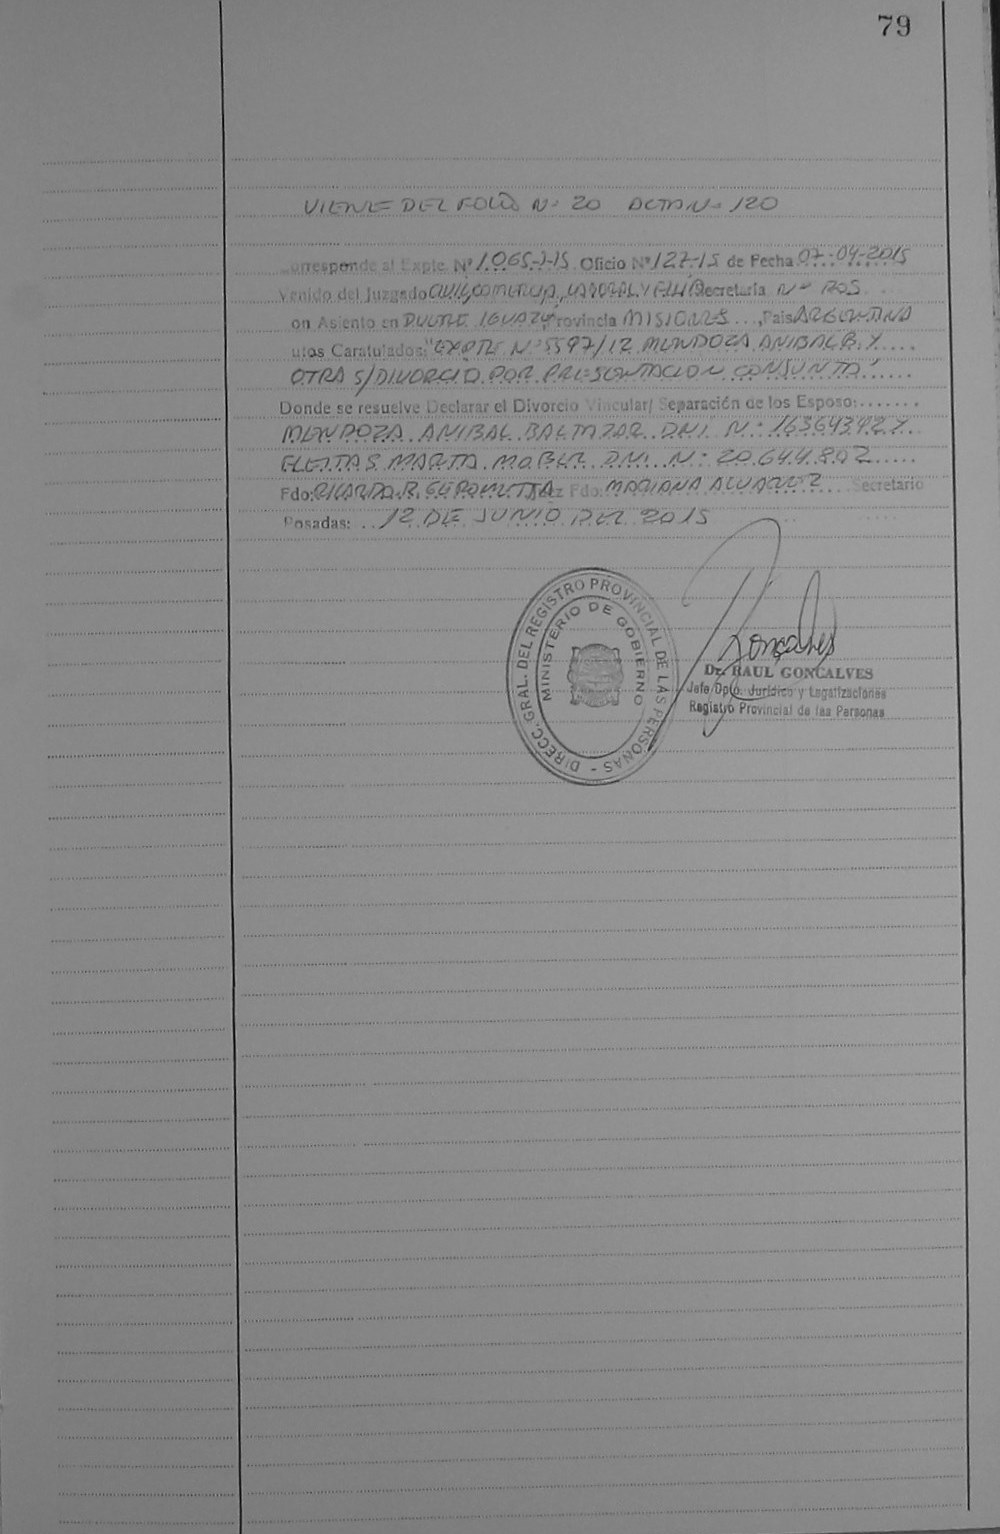 79
VIENE DEL FOLIO N° 20 ACTA N° 120
orresponde al Expte. Nº 1.065-J-15 Oficio Nº 127-15 de Fecha 07-04-2015
Venido del Juzgado CIVIL, COMERCIAL, LABORAL Y FLIA Secretaría Nº DOS
on Asiento en PUERTO IGUAZU Provincia MISIONES ..., Pais ARGENTINA
utos Caratulados: "EXPTE Nº 5597/12 MENDOZA ANIBAL B. Y ....
OTRA S/DIVORCIO POR PRESENTACION CONJUNTA" .....
Donde se resuelve Declarar el Divorcio Vincular/ Separación de los Esposo: .......
MENDOZA ANIBAL BALTAZAR DNI N: 16364392 Y
FLEITAS MARTA MABEL DNI N: 20.644.802 .....
Fdo: RICARDO R. Juez Fdo: MARIANA ALVAREZ .... Secretario
Posadas: .. 12 DE JUNIO DEL 2015
DIRECC. GRAL. DEL REGISTRO PROVINCIAL DE LAS PERSONAS -
MINISTERIO DE GOBIERNO
Gonçalves
Dr. RAUL GONCALVES
Jefe Dpto. Jurídico y Legalizaciones
Registro Provincial de las Personas